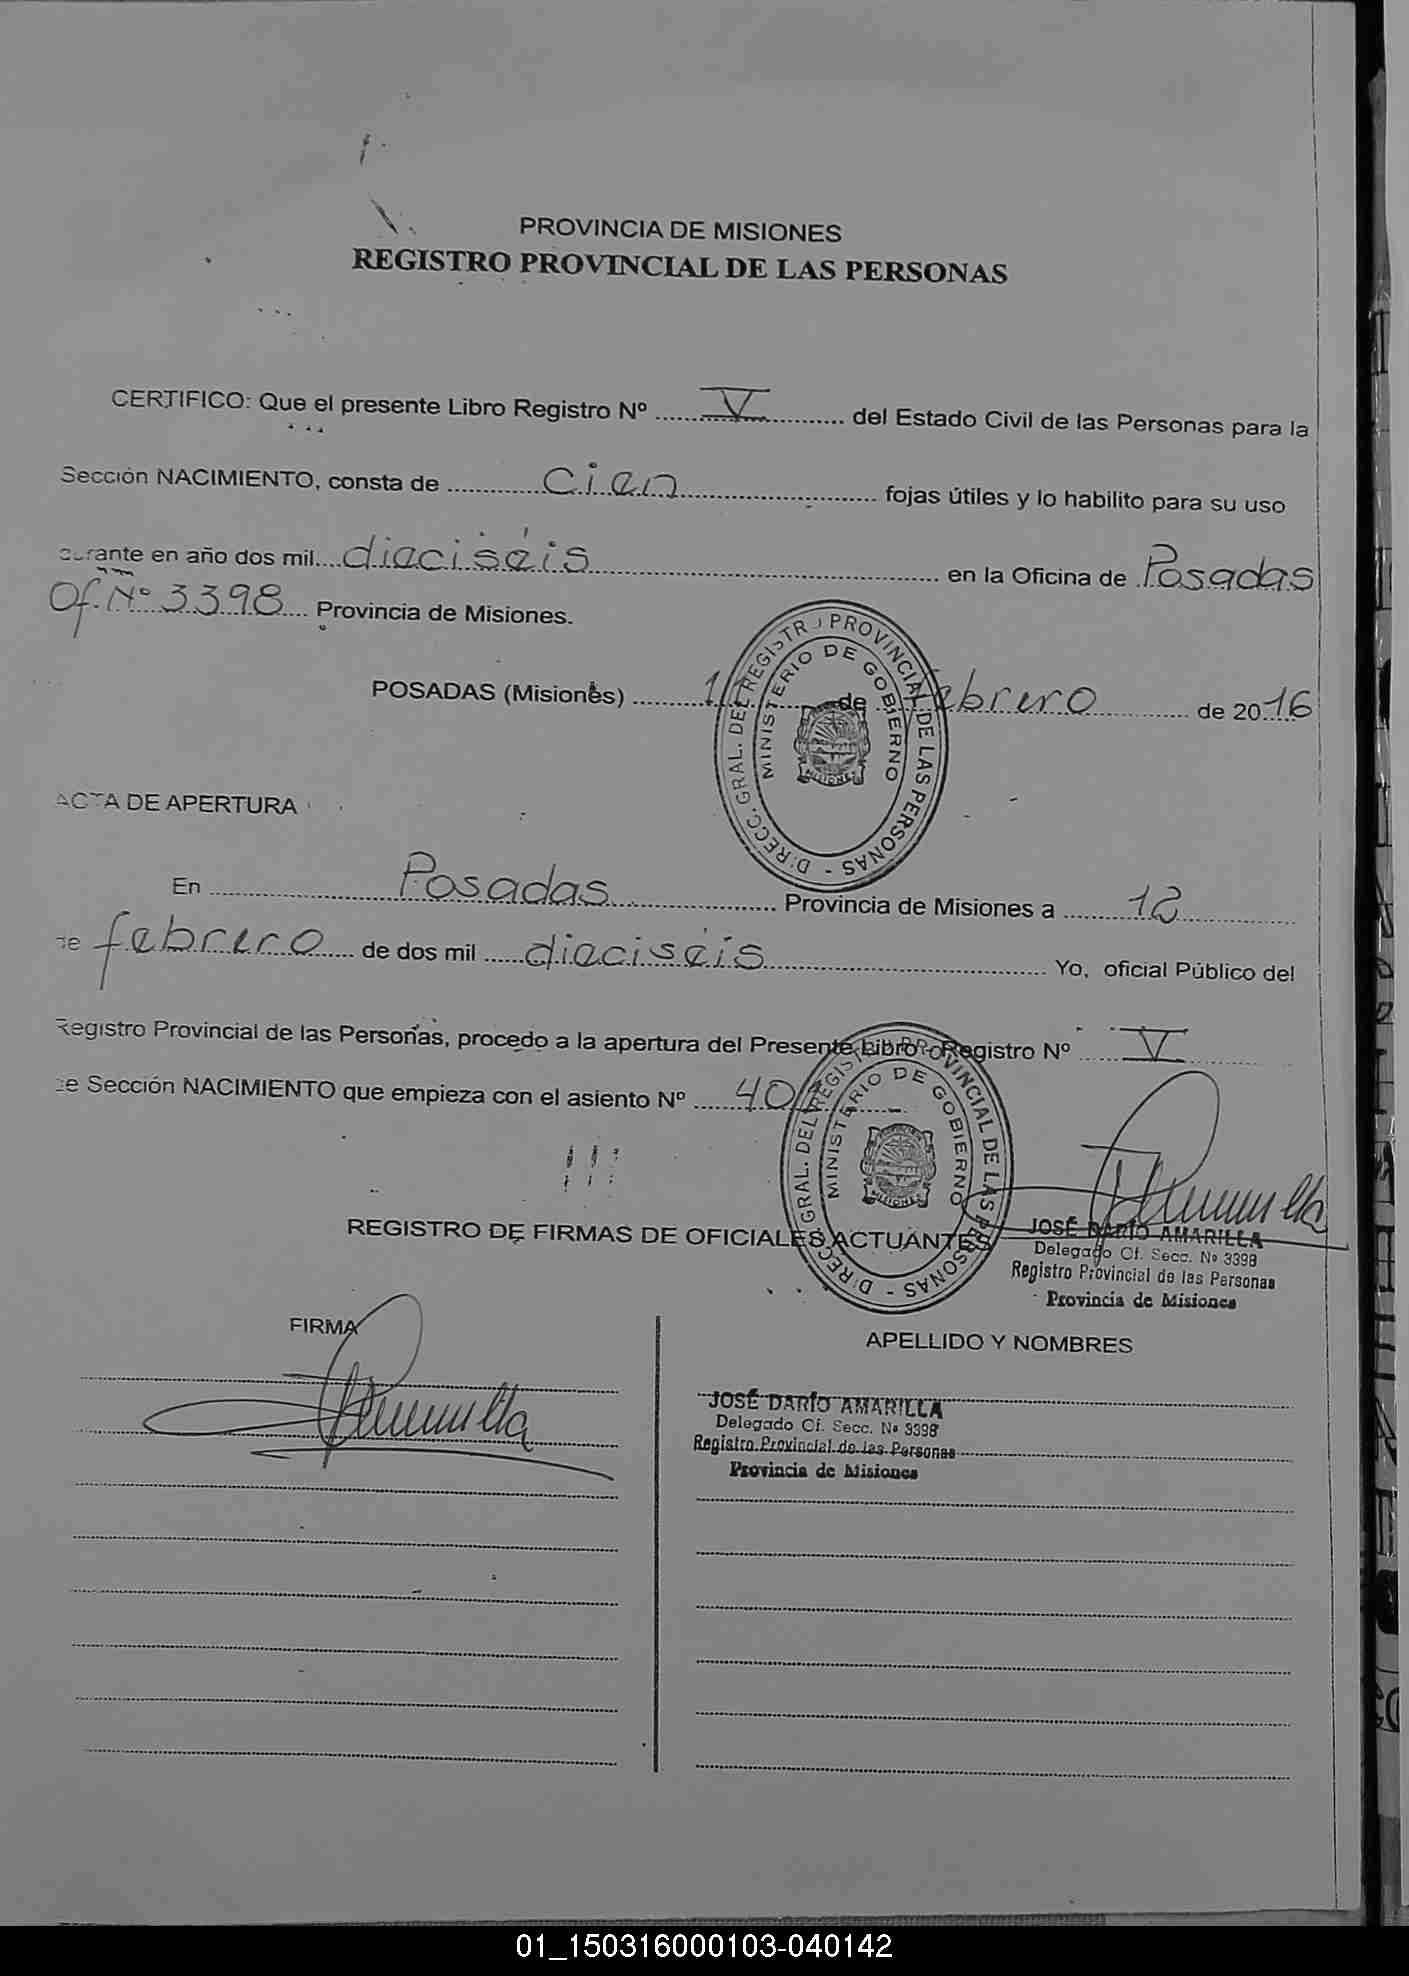 PROVINCIA DE MISIONES
REGISTRO PROVINCIAL DE LAS PERSONAS
CERTIFICO: Que el presente Libro Registro Nº ...... V ...... del Estado Civil de las Personas para la
Sección NACIMIENTO, consta de ...... Cien ...... fojas útiles y lo habilito para su uso
durante en año dos mil.... dieciséis ...... en la Oficina de Posadas
Of. Nº 3398 .... Provincia de Misiones.
POSADAS (Misiones) ...... de febrero ...... de 2016
DIRECC. GRAL. DEL REGISTRO PROVINCIAL DE LAS PERSONAS -
MINISTERIO DE GOBIERNO
MISIONES
ACTA DE APERTURA
En ...... Posadas ...... Provincia de Misiones a ...... 12 ......
de febrero .... de dos mil ...... dieciséis ...... Yo, oficial Público del
Registro Provincial de las Personas, procedo a la apertura del Presente Libro Registro Nº ...... V ......
de Sección NACIMIENTO que empieza con el asiento Nº ......
DIRECC. GRAL. DEL REGISTRO PROVINCIAL DE LAS PERSONAS -
MINISTERIO DE GOBIERNO
MISIONES
REGISTRO DE FIRMAS DE OFICIALES ACTUANTES
JOSÉ DARÍO AMARILLA
Delegado Of. Secc. Nº 3398
Registro Provincial de las Personas
Provincia de Misiones
FIRMA
APELLIDO Y NOMBRES
JOSÉ DARÍO AMARILLA
Delegado Of. Secc. Nº 3398
Registro Provincial de las Personas
Provincia de Misiones
01_150316000103-040142